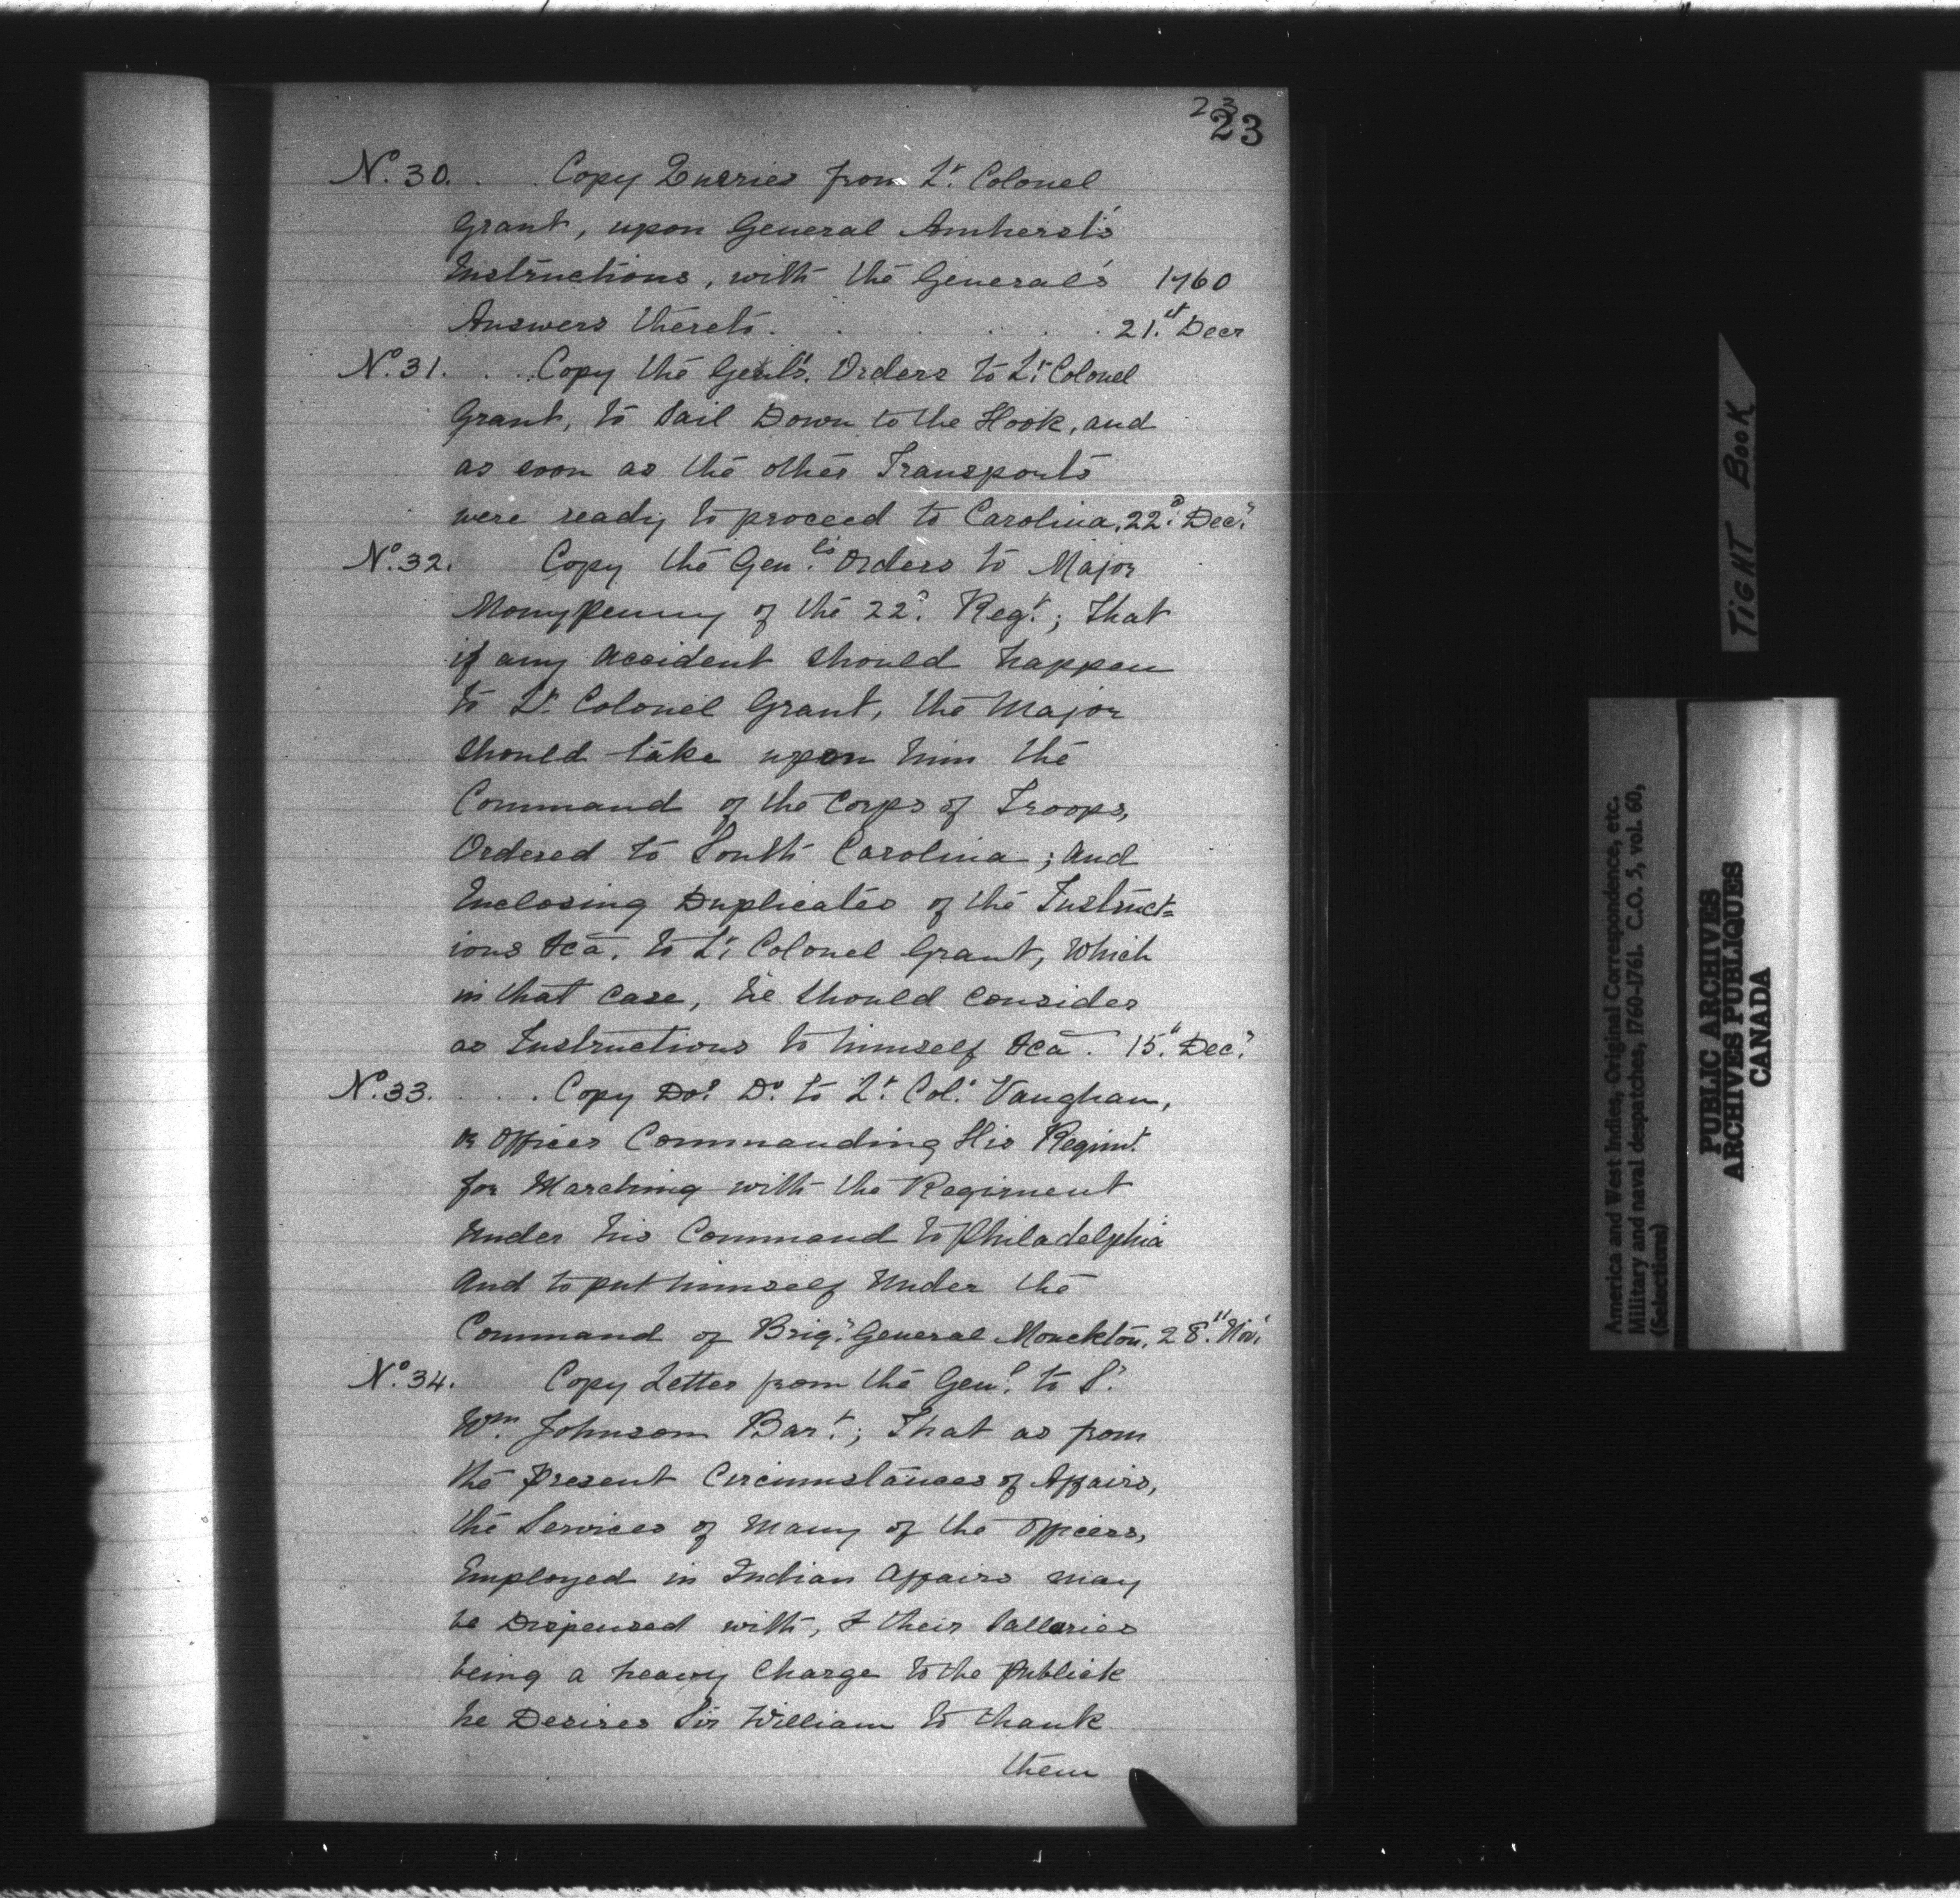 23
23
No. 30. . . Copy Queries from Lt. Colonel
Grant, upon General Amherst's
Instructions, with the General's 1760
Answers thereto. . . . . . 21.st Decr
No. 31. . . . Copy the Genls. Orders to Lt. Colonel
Grant, to Sail Down to the Hook, and
as soon as the other Transports
were ready to proceed to Carolina, 22d. Decr.
No. 32. Copy the Genl's. Orders to Major
Monypenny of the 22d. Regt.; That
if any accident should happen
to Lt. Colonel Grant, the Major
should take upon him the
Command of the Corps of Troops,
Ordered to South Carolina; and
Enclosing Duplicates of the Instruct=
ions &ca. to Lt. Colonel Grant, which
in that case, he should consider
as Instructions to himself &ca. 15th. Decr.
No. 33. . . . Copy Do. Do. to Lt. Col. Vaughan,
or Officer Commanding His Regimt.
for Marching with the Regiment
under his Command to Philadelphia
And to put himself Under the
Command of Brigr. General Monckton, 28.th Novr.
No. 34. Copy Letter from the Genl. to Sr.
Wm. Johnson Bart.; That as from
the Present Circumstances of Affairs,
the Services of many of the officers,
Employed in Indian Affairs may
be Dispensed with, & their Sallaries
being a heavy Charge to the Publick
he Desires Sir William to thank
them
TIGHT BOOK
America and West Indies, Original Correspondence, etc.
Military and naval despatches, 1760-1761. C.O. 5, vol. 60,
(Selections)
PUBLIC ARCHIVES
ARCHIVES PUBLIQUES
CANADA